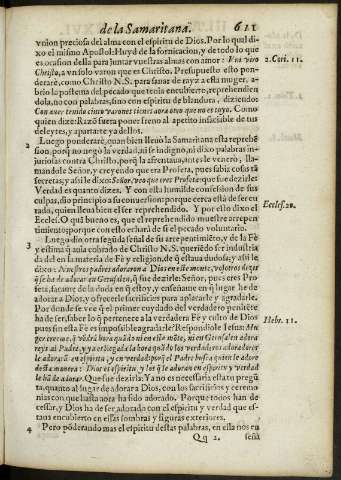 de la Samaritana. 611
vnion preciosa del alma con el espiritu de Dios. Por lo qual di-
xo el mismo Apostol: Huyd de la fornicacion, y de todo lo que
es ocasion della para juntar vuestras almas con amor: Vna viro
Christo, a vn solo varon que es Christo. Presupuesto esto pon-
2. Cori. 11.
derarè, como Christo N. S. para sanar de rayz a esta muger, a-
brio la postema del pecado que tenia encubierto, reprehendien
dola, no con palabras, sino con espiritu de blandura, diziendo:
Con auer tenido cinco varones tienes aora vno que no es tuyo. Como
quien dize: Razõ fuera poner freno al apetito insaciable de tus
deleytes, y apartarte ya dellos.
2 Luego ponderarè, quan bien lleuò la Samaritana esta reprehẽ
sion, porq̃ no negò la verdad, ni se indignò, ni dixo palabras in-
juriosas contra Christo, porq̃ la afrentaua, antes le venerò, lla-
mandole Señor, y creyendo que era Profeta, pues sabia cosas tã
secretas; y assi le dixo: Señor, veo que eres Profeta: que fue dezirle:
Verdad es quanto dizes. Y con esta humilde confession de sus
culpas, dio principio a su conuersion: porque cerca està de ser cu
rado, quien lleua bien el ser reprehendido. Y por ello dixo el
Eccles. 20.
Eccles. O quã bueno es, que el reprehendido muestre arrepen-
timiento; porque con esto echarà de si el pecado voluntario.
3 Luego dio otra segũda señal de su arrepentimiẽto, y de la Fè
y estima q̃ auia cobrado de Christo N. S. queriẽdo ser industria
da del en la materia de Fè y religion, de q̃ estaua dudosa; y assi le
dixo: Nuestros padres adoraron a Dios en este monte, y vosotros dezis
q̃ se ha de adorar en Gerusalen, q̃ fue dezirle: Señor, pues eres Pro-
feta, sacame de la duda en q̃ estoy, y enseñame en q̃ lugar he de
adorar a Dios, y ofrecerle sacrificios para aplacarle y agradarle.
Por donde se vee q̃ el primer cuydado del verdadero penitẽte
ha de ser, saber lo q̃ pertenece a la verdadera Fè y culto de Dios
Hebr. 11.
pues sin esta Fè es imposible agradarle. Respondiole Iesus: Mu-
ger creeme, q̃ vẽdrà hora quãdo ni en este mõte, ni en Gerusalen adora
reys al Padre, y ya es llegada la hora quãdo los verdaderos adoradores
le adorarã en espiritu, y en verdad: porq̃ el Padre busca quien le adore
desta manera: Dios es espiritu, y los q̃ le adoran en espiritu y verdad
le hã de adorar. Que fue dezirle: Ya no es necessaria estas pregũ
ta, quanto al lugar de adorar a Dios, con los sacrificios y ceremo
nias con que hasta aora ha sido adorado. Porque todos han de
cessar, y Dios ha de ser adorado con el espiritu y verdad que es-
taua encubierto en essas sombras y figuras exteriores.
4 Pero põderando mas el espiritu destas palabras, en ella nos en
Qq 2. seña